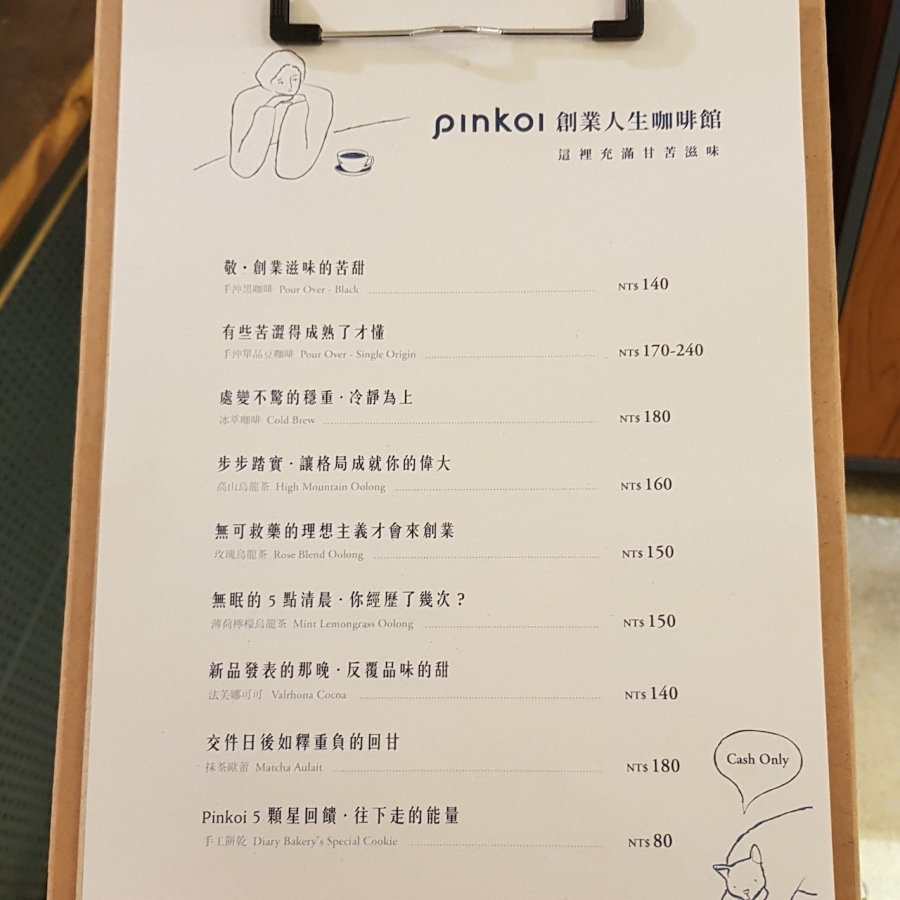 pinkoi 創業人生咖啡館
這裡充滿甘苦滋味
敬・創業滋味的苦甜
手沖黑咖啡 Pour Over - Black NT$ 140
有些苦澀得成熟了才懂
手沖單品豆咖啡 Pour Over - Single Origin NT$ 170-240
處變不驚的穩重・冷靜為上
冰萃咖啡 Cold Brew NT$ 180
步步踏實・讓格局成就你的偉大
高山烏龍茶 High Mountain Oolong NT$ 160
無可救藥的理想主義才會來創業
玫瑰烏龍茶 Rose Blend Oolong NT$ 150
無眠的 5 點清晨・你經歷了幾次？
薄荷檸檬烏龍茶 Mint Lemongrass Oolong NT$ 150
新品發表的那晚・反覆品味的甜
法芙娜可可 Valrhona Cocoa NT$ 140
交件日後如釋重負的回甘
抹茶歐蕾 Matcha Aulait NT$ 180
Cash Only
Pinkoi 5 顆星回饋・往下走的能量
手工餅乾 Diary Bakery's Special Cookie NT$ 80